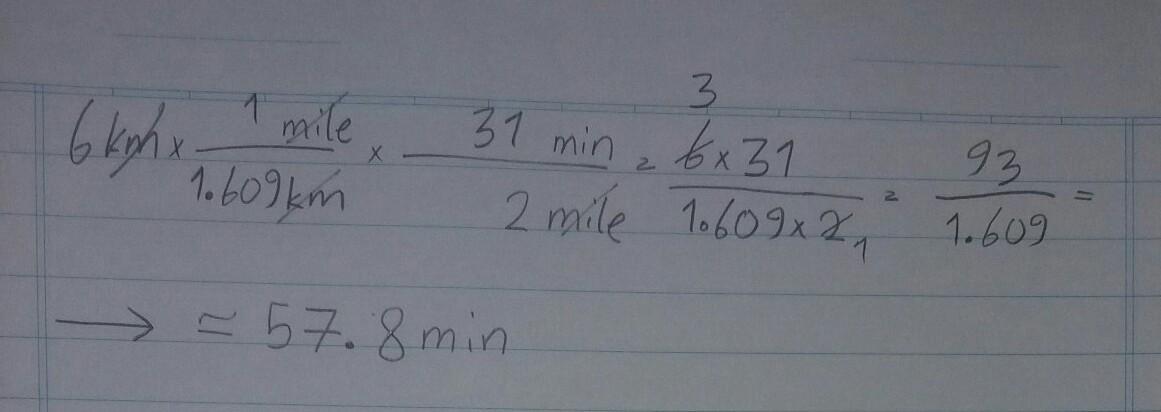 6 km × 1 mile / 1.609 km × 31 min / 2 mile = 3 6 × 31 / 1.609 × 2 1 = 93 / 1.609 =
→ = 57.8 min